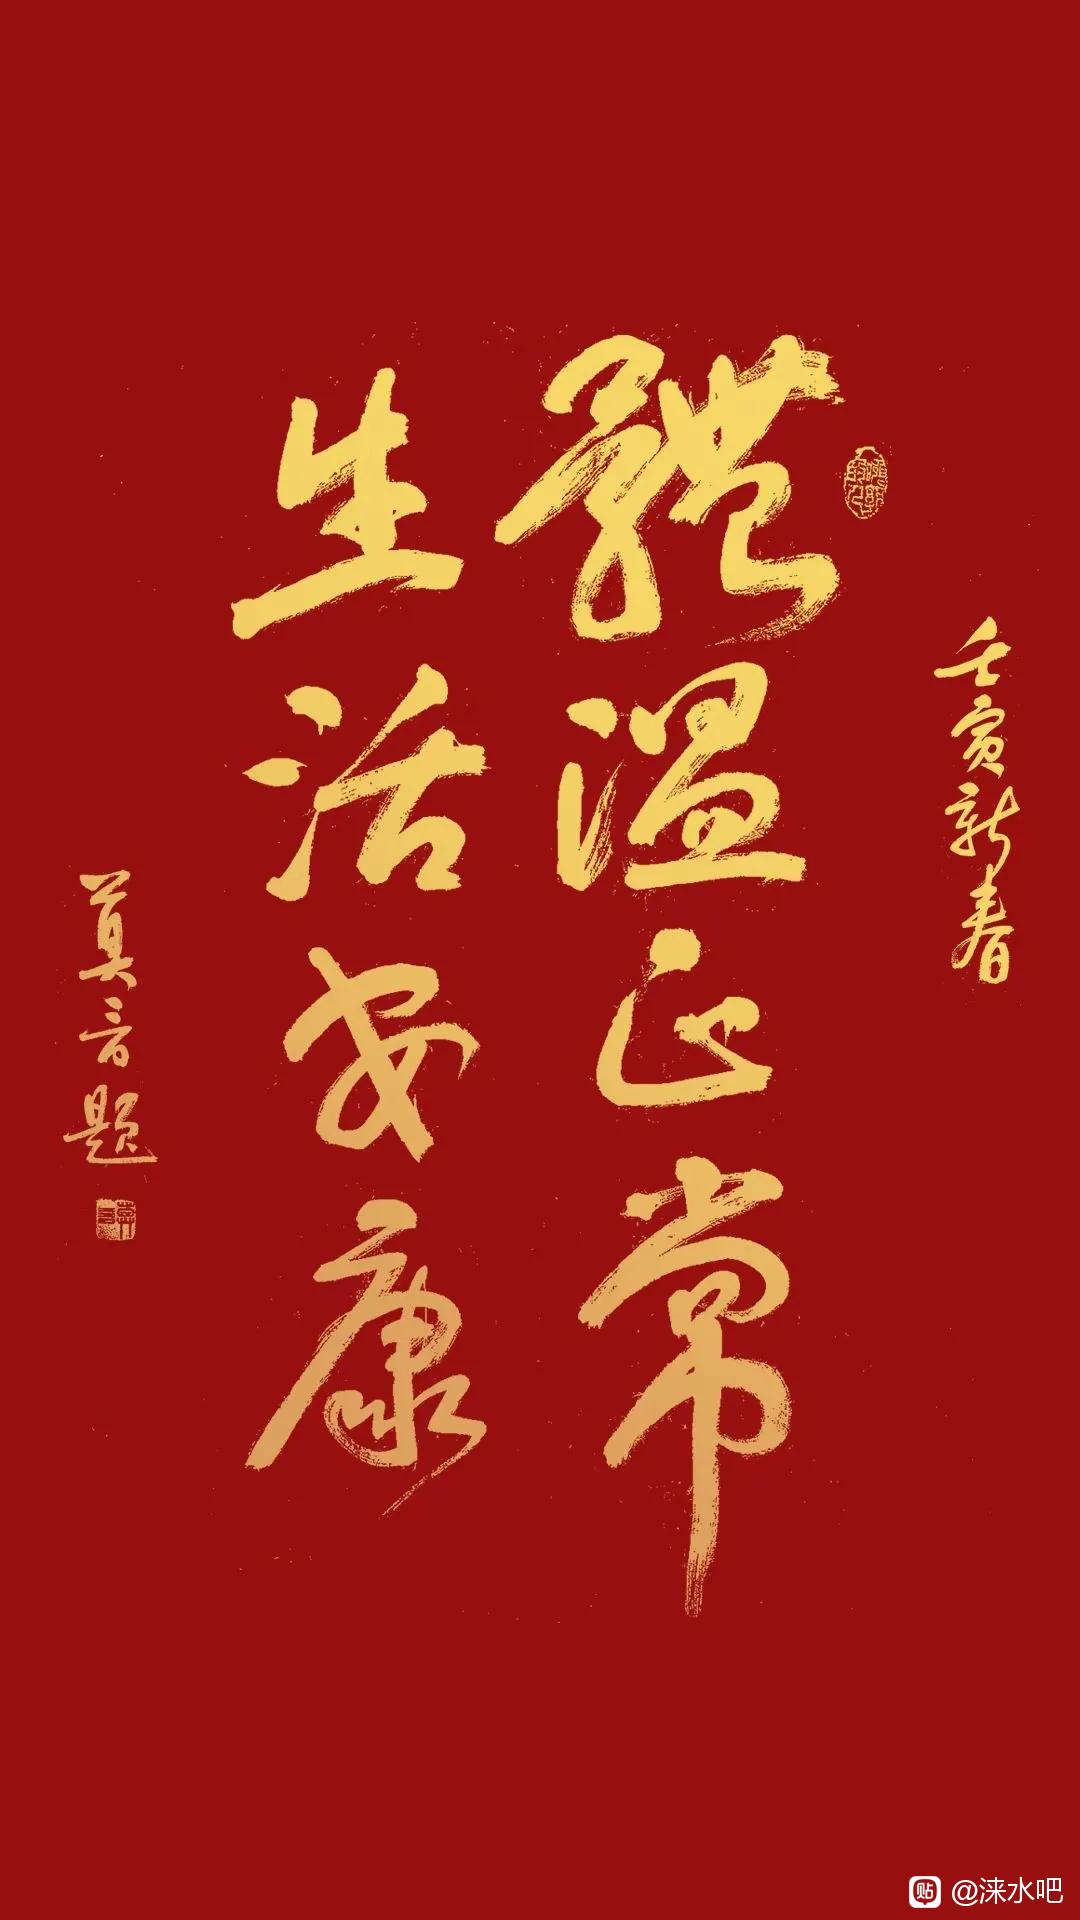 壬寅新春
體溫正常
生活安康
莫言题
@涞水吧